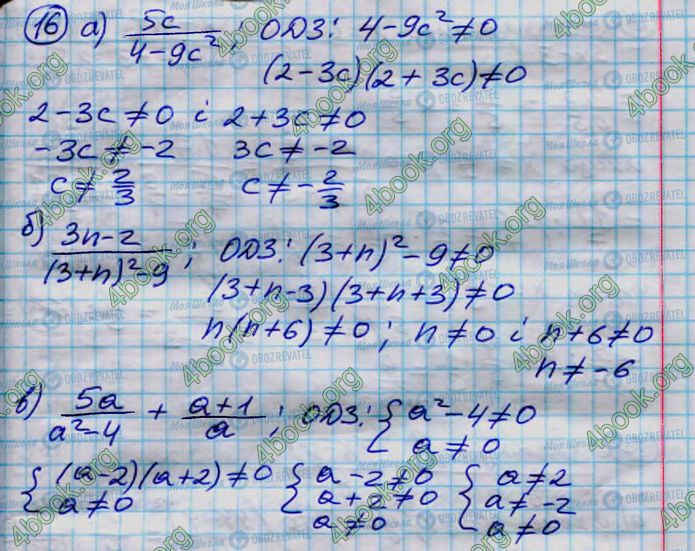 16 а) 5c / 4-9c² ; ОДЗ: 4-9c²≠0
(2-3c)(2+3c)≠0
2-3c≠0 і 2+3c≠0
-3c≠-2 3c≠-2
c≠2/3 c≠-2/3
б) 3n-2 / (3+n)²-9 ; ОДЗ: (3+n)²-9≠0
(3+n-3)(3+n+3)≠0
n(n+6)≠0; n≠0 і n+6≠0
n≠-6
в) 5a / a²-4 + a+1 / a ; ОДЗ: { a²-4≠0
a≠0
{ (a-2)(a+2)≠0 { a-2≠0 { a≠2
a≠0 a+2≠0 a≠-2
a≠0 a≠0
4book.org
Моя Школа
OBOZREVATEL